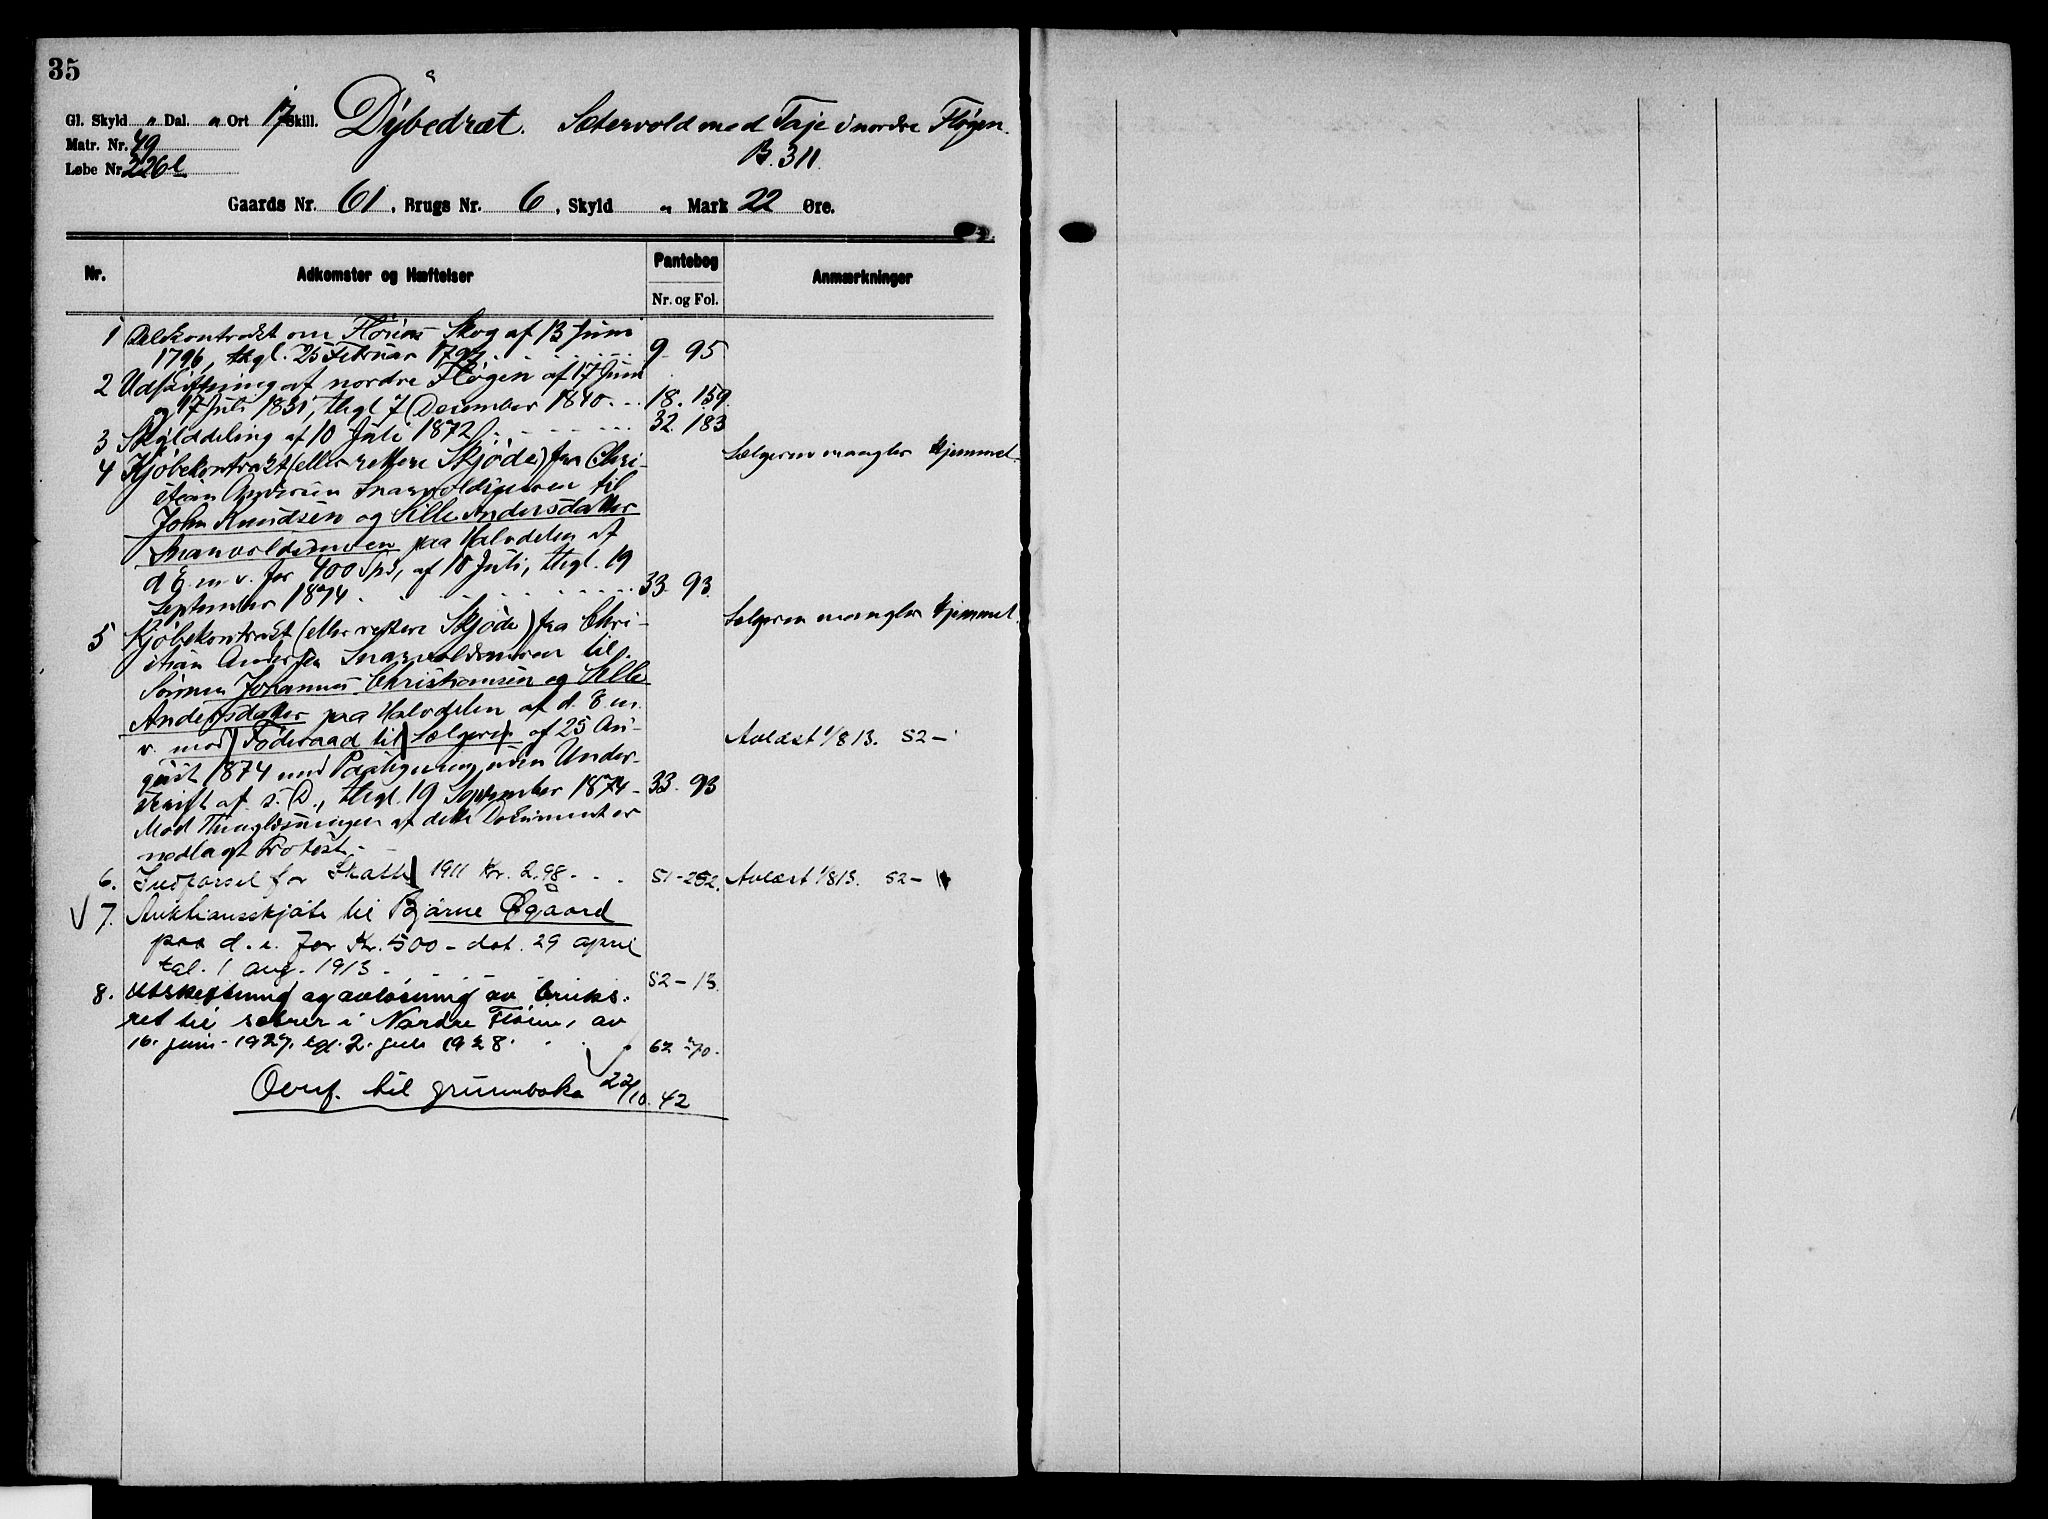 35
Gl. Skyld " Dal. " Ort 17 Skill. Dybedræt. Sætervold med Taje i nordre Fløgen.
Matr. Nr. 49
B. 311.
Løbe Nr. 226 e
Gaards Nr. 61, Brugs Nr. 6, Skyld " Mark 22 Øre.
Nr. Adkomster og Hæftelser Pantebog Anmærkninger
Nr. og Fol.
1 Delekontrakt om Skog af 13 Juni
1796, thgl. 25 Februar 1797 9 - 95
2 Udskiftning af nordre Fløgen af 17 Juni
og 17 Juli 1831, thgl. 7 December 1840 18. 159.
3 Skylddeling af 10 Juli 1872 32. 183
4 Kjøbekontrakt (eller rettere Skjøde) fra Chri- Sælgeren mangler Hjemmel.
stian Andersen til
John Knudsen og Sille Andersdatter
paa Halvdelen af
d. E. m. v. for 400 Spd, af 10 Juli, thgl. 19
September 1874 33. 93.
5 Kjøbekontrakt (eller rettere Skjøde) fra Chri- Sælgeren mangler Hjemmel.
stian Andersen til
Johannes Christiansen og Sille
Andersdatter paa Halvdelen af d. E. m.
v. mod Føderaad til Sælgeren af 25 Au- Avlæst 1/8 13. 52 -
gust 1874 med Paategning uden Under-
skrift af s. D., thgl. 19 September 1874 - 33. 93
Mod Thinglæsningen af dette Document er
nedlagt Protest. -
6. Utpansel for Skatte 1911 Kr. 2.98 - 51 - 252. Avlæst 1/8 13. 52 -
7. Auktionsskjøte til Bjarne Øgaard
paa d. e. for Kr. 500 - dat. 29 april
tgl. 1 aug. 1913. 52 - 13.
8. Utskiftning og avløsning av bruks-
ret til sætrer i Nordre Fløien, av
16. juni - 1927. tgl. 2. juli 1928. 62 - 70.
Overf. til grunnboka 22/10. 42